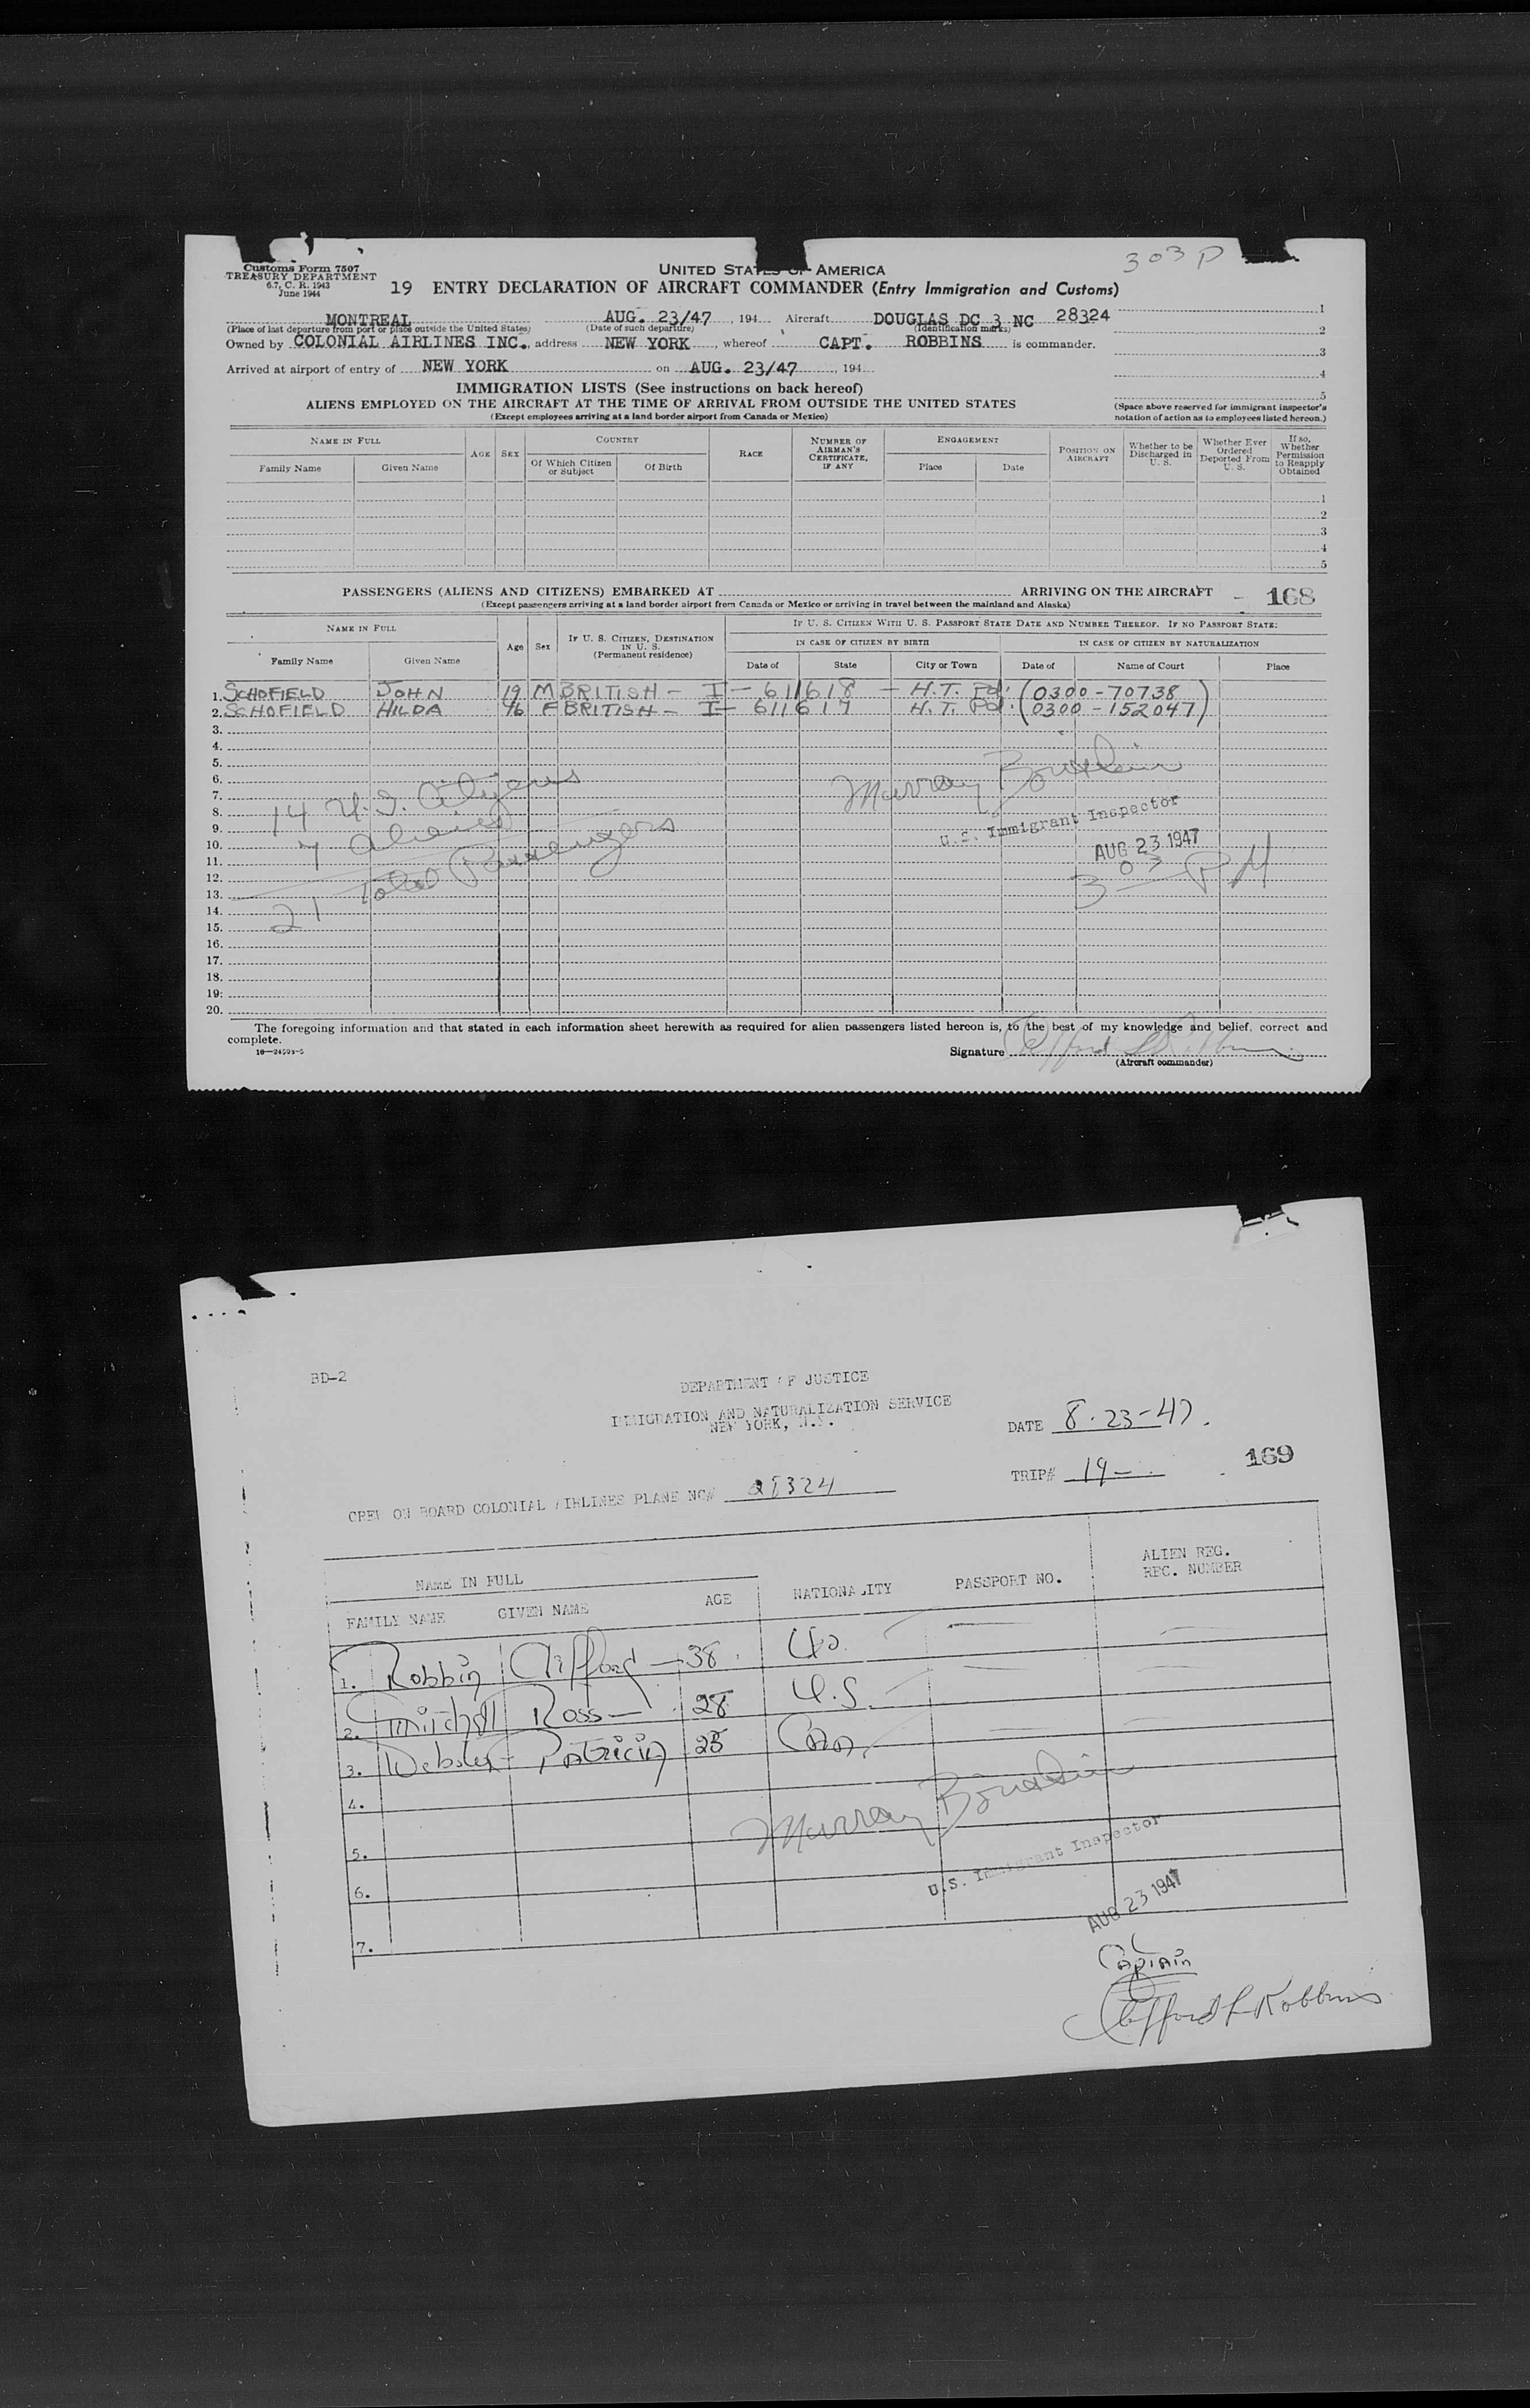 303 P
Customs Form 7507
TREASURY DEPARTMENT
6.7, C. R. 1943
June 1944
UNITED STATES OF AMERICA
19 ENTRY DECLARATION OF AIRCRAFT COMMANDER (Entry Immigration and Customs)
MONTREAL AUG. 23/47, 194 Aircraft DOUGLAS DC 3 NC 28324 1
(Place of last departure from port or place outside the United States) (Date of such departure) (Identification marks) 2
Owned by COLONIAL AIRLINES INC., address NEW YORK, whereof CAPT. ROBBINS is commander. 3
Arrived at airport of entry of NEW YORK on AUG. 23/47, 194 4
IMMIGRATION LISTS (See instructions on back hereof) 5
ALIENS EMPLOYED ON THE AIRCRAFT AT THE TIME OF ARRIVAL FROM OUTSIDE THE UNITED STATES
(Space above reserved for immigrant inspector's
(Except employees arriving at a land border airport from Canada or Mexico)
notation of action as to employees listed hereon.)
NAME IN FULL
Family Name Given Name
AGE SEX
COUNTRY
Of Which Citizen or Subject Of Birth
RACE
NUMBER OF AIRMAN'S CERTIFICATE, IF ANY
ENGAGEMENT
Place Date
POSITION ON AIRCRAFT
Whether to be Discharged in U. S.
Whether Ever Ordered Deported From U. S.
If so, Whether Permission to Reapply Obtained
1
2
3
4
5
PASSENGERS (ALIENS AND CITIZENS) EMBARKED AT ARRIVING ON THE AIRCRAFT - 168
(Except passengers arriving at a land border airport from Canada or Mexico or arriving in travel between the mainland and Alaska)
NAME IN FULL
Family Name Given Name
Age Sex
IF U. S. CITIZEN, DESTINATION IN U. S. (Permanent residence)
IF U. S. CITIZEN WITH U. S. PASSPORT STATE DATE AND NUMBER THEREOF. IF NO PASSPORT STATE:
IN CASE OF CITIZEN BY BIRTH IN CASE OF CITIZEN BY NATURALIZATION
Date of State City or Town Date of Name of Court Place
1. SCHOFIELD JOHN 19 M BRITISH - I - 611618 - H.T. Pd. (0300-70738)
2. SCHOFIELD HILDA 46 F BRITISH - I - 611617 H.T. Pd. (0300-152047)
3.
4.
5.
6.
7.
8.
9.
10.
11.
12.
13.
14.
15.
16.
17.
18.
19.
20.
14 U.S. Citizens
7 Aliens
21 Total Passengers
Murray
U.S. Immigrant Inspector
AUG 23 1947
3 03 PM
The foregoing information and that stated in each information sheet herewith as required for alien passengers listed hereon is, to the best of my knowledge and belief, correct and
complete.
16-24593-5
Signature Clifford L Robbins
(Aircraft commander)
BD-2
DEPARTMENT OF JUSTICE
IMMIGRATION AND NATURALIZATION SERVICE
NEW YORK, N.Y.
DATE 8-23-47.
TRIP# 19- 169
CREW ON BOARD COLONIAL AIRLINES PLANE NC# 28324
NAME IN FULL
FAMILY NAME GIVEN NAME AGE NATIONALITY PASSPORT NO. ALIEN REG. REC. NUMBER
1. Robbin Clifford - 38. U.S.
2. Mitchell Ross - 28 U.S.
3. Webster - Patricia 23 Can.
4.
5.
6.
7.
Murray
U.S. Immigrant Inspector
AUG 23 1947
Captain
Clifford L Robbins